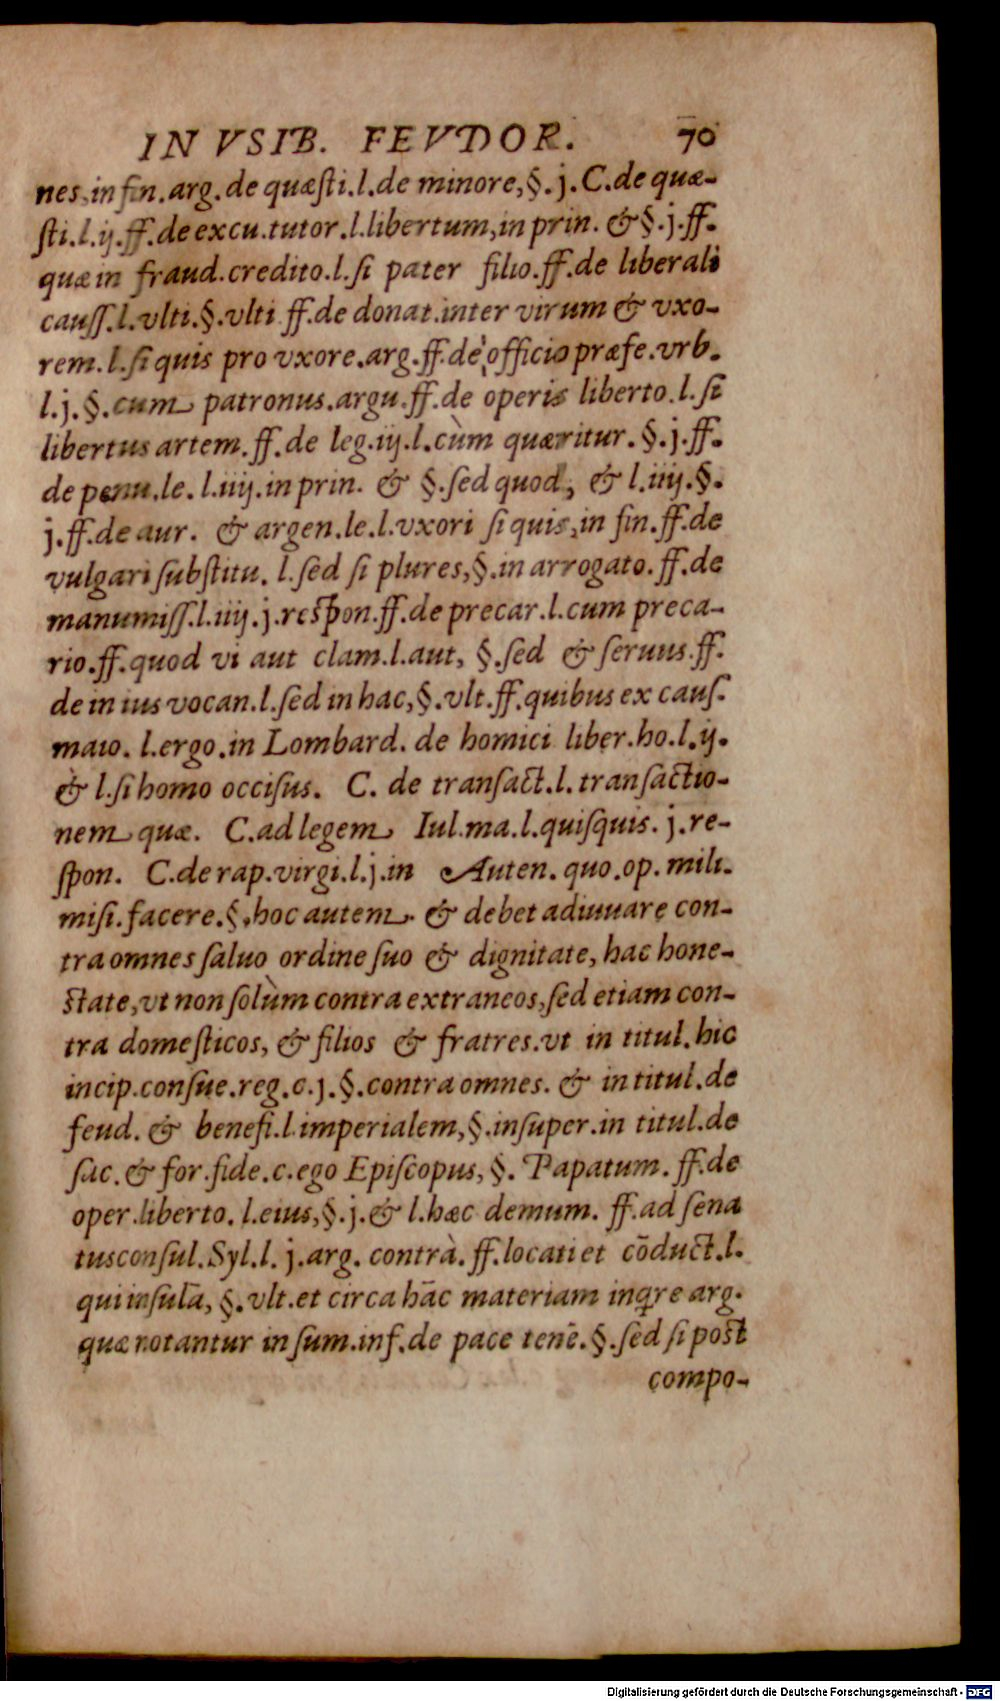 IN VSIB. FEVDOR. 70
nes, in fin. arg. de quæsti. l. de minore, §. j. C. de quæ-
sti. l. ij. ff. de excu. tutor. l. libertum, in prin. & §. j. ff.
quæ in fraud. credito. l. si pater filio. ff. de liberali
causs. l. vlti. §. vlti ff. de donat. inter virum & vxo-
rem. l. si quis pro vxore. arg. ff. de officio præfe. vrb.
l. j. §. cum patronus. argu. ff. de operis liberto. l. si
libertus artem. ff. de leg. iij. l. cùm quæritur. §. j. ff.
de penu. le. l. iiij. in prin. & §. sed quod, & l. iiij. §.
j. ff. de aur. & argen. le. l. vxori si quis, in fin. ff. de
vulgari substitu. l. sed si plures, §. in arrogato. ff. de
manumiss. l. iiij. j. respon. ff. de precar. l. cum preca-
rio. ff. quod vi aut clam. l. aut, §. sed & seruus. ff.
de in ius vocan. l. sed in hac, §. vlt. ff. quibus ex caus.
maio. l. ergo. in Lombard. de homici liber. ho. l. ij.
& l. si homo occisus. C. de transact. l. transactio-
nem quæ. C. ad legem Iul. ma. l. quisquis. j. re-
spon. C. de rap. virgi. l. j. in Auten. quo. op. mili.
misi. facere. §. hoc autem. & debet adiuuare con-
tra omnes saluo ordine suo & dignitate, hac hone-
state, vt non solùm contra extraneos, sed etiam con-
tra domesticos, & filios & fratres. vt in titul. hic
incip. consue. reg. c. j. §. contra omnes. & in titul. de
feud. & benefi. l. imperialem, §. insuper. in titul. de
sac. & for. fide. c. ego Episcopus, §. Papatum. ff. de
oper. liberto. l. eius, §. j. & l. hæc demum. ff. ad sena
tusconsul. Syl. l. j. arg. contrà. ff. locati et cōduct. l.
qui insulā, §. vlt. et circa hāc materiam inq̄re arg.
quæ notantur in sum. inf. de pace tenē. §. sed si post
compo-
Digitalisierung gefördert durch die Deutsche Forschungsgemeinschaft - DFG